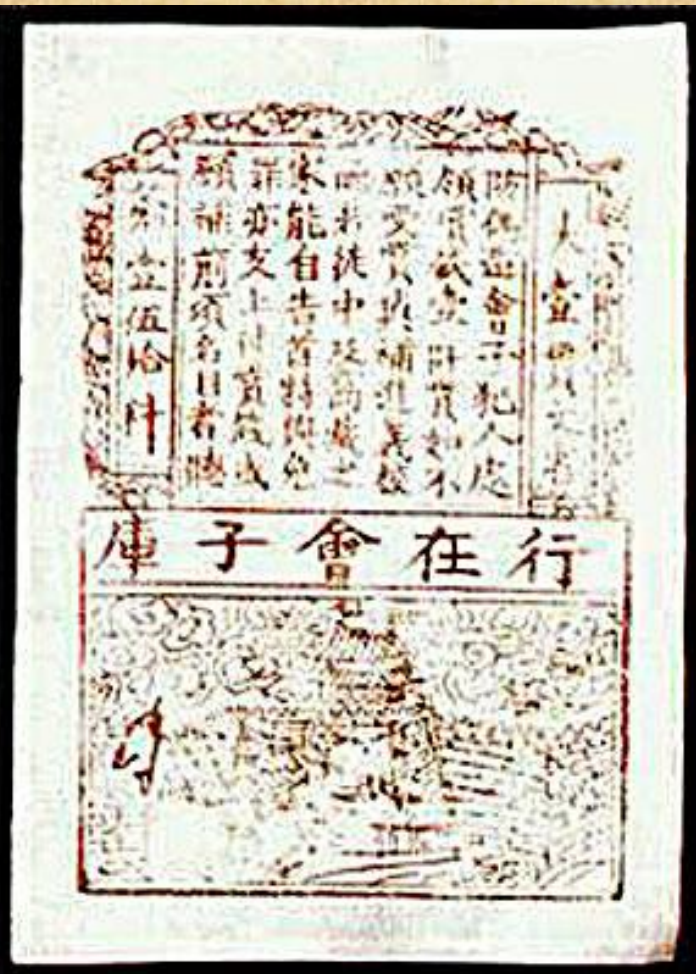 大壹文省
偽造會子犯人處
賞錢壹阡貫如不
願支賞與補進義校
徒中及窩藏之
家能自告首特與免
罪亦支上件賞錢或
願補前項名目者聽
壹伍拾料
行在會子庫